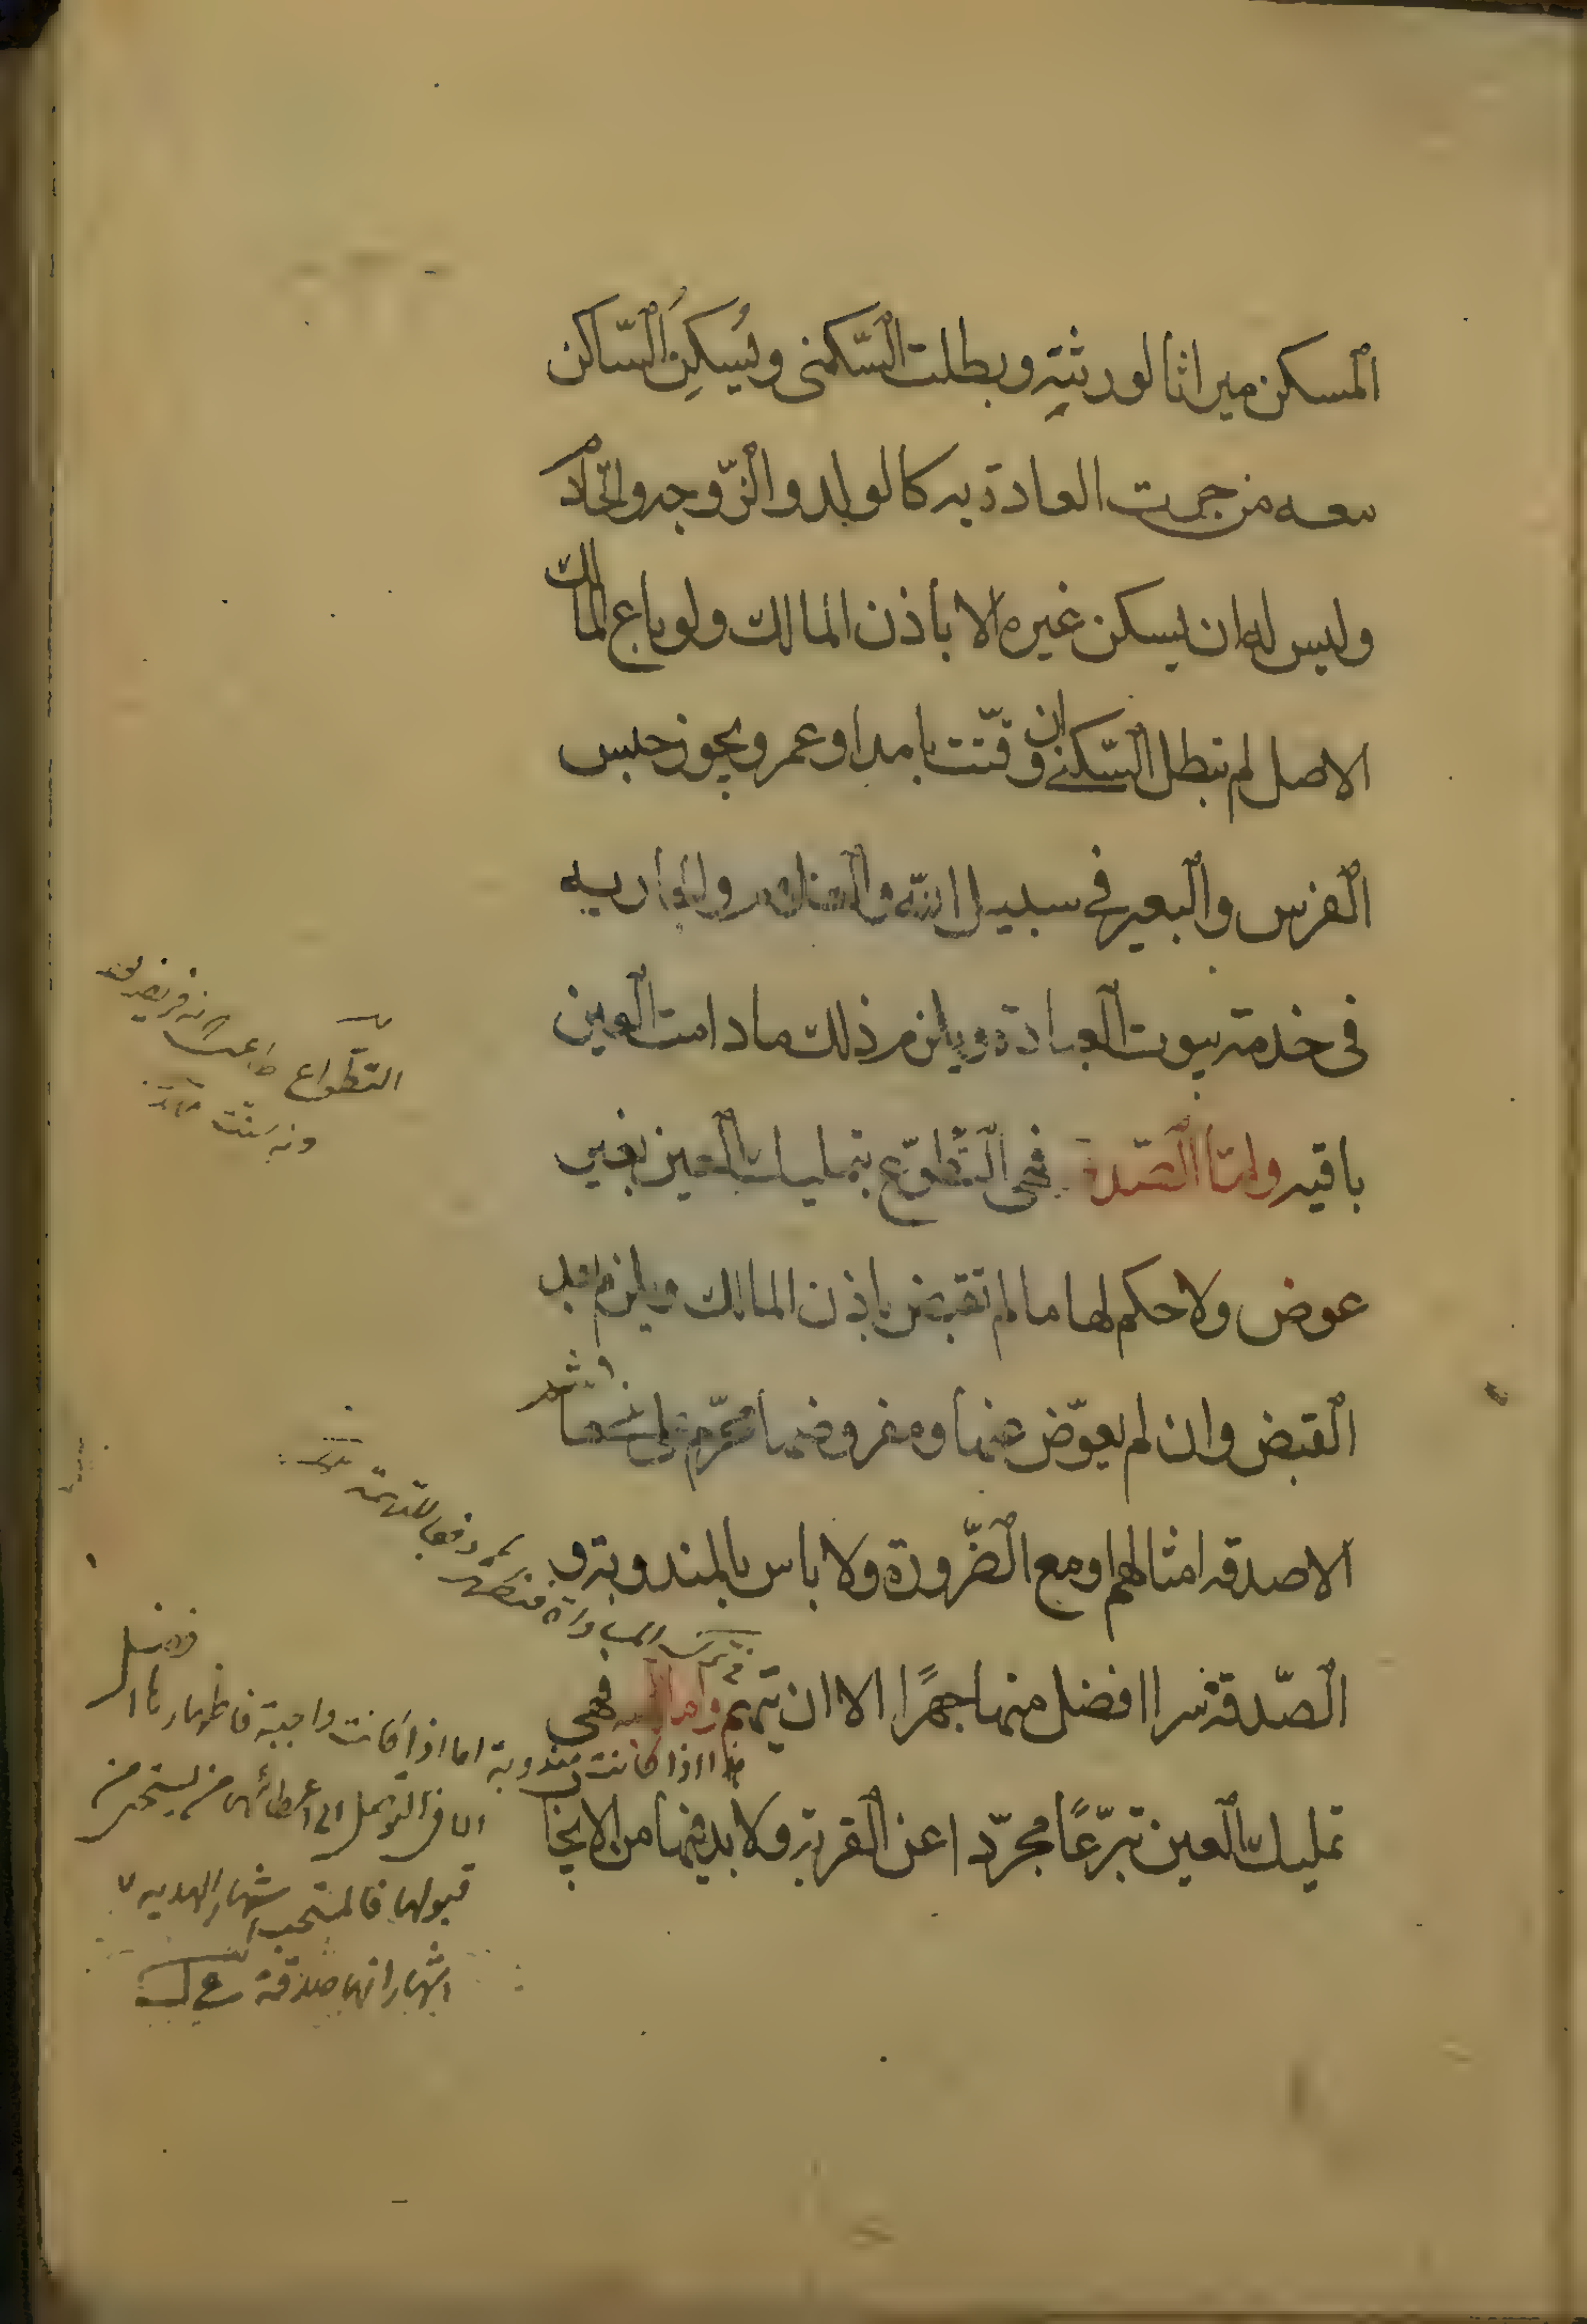 المسكن ميراثا لورثته وبطلت السّكنى ويُسكِنُ السّاكن
معه من جرت العادة به كالولد والزّوجه والخادم
وليس له ان يسكن غيره الا باذن المالك ولو باع المالك
الاصل لم تبطل السّكنى ان وقّتت بامد او عمر ويجوز حبس
الفرس والبعير في سبيل الله والغلام والجاريه
فى خدمة بيوت العبادة ويلزم ذلك مادامت العين
باقيه وامّا الصّدقة فهى التّطوّع بتمليك العين بغير
عوض ولا حكم لها مالم تقبض باذن المالك ويلزم بعد
القبض وان لم يعوّض عنها ومفروضها محرّم على بنى هاشم
الا صدقه امثالهم او مع الضّرورة ولا باس بالمندوبة و
الصّدقة سرا افضل منها جهرًا الا ان يتهم وامّا الهبه فهى
تمليك العين تبرّعًا مجرّدا عن القربة ولا بد فيها من الايجا
التطواع
ونه سنّت
في ترك المساواة فتظهر دفعا للتهمة
هذا اذا كانت مندوبة اما اذا كانت واجبة فاظهارها افضل
قبولها فالمستحب اشهار الهديه لا
اشهار انها صدقة